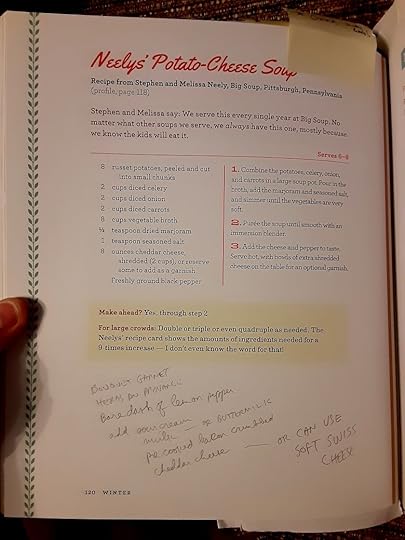 Neelys' Potato-Cheese Soup
Recipe from Stephen and Melissa Neely, Big Soup, Pittsburgh, Pennsylvania
(profile, page 118)
Stephen and Melissa say: We serve this every single year at Big Soup. No
matter what other soups we serve, we always have this one, mostly because
we know the kids will eat it.
Serves 6–8
8 russet potatoes, peeled and cut
into small chunks
2 cups diced celery
2 cups diced onion
2 cups diced carrots
8 cups vegetable broth
teaspoon dried marjoram
1 teaspoon seasoned salt
8 ounces cheddar cheese,
shredded (2 cups), or reserve
some to add as a garnish
Freshly ground black pepper
1. Combine the potatoes, celery, onion,
and carrots in a large soup pot. Pour in the
broth, add the marjoram and seasoned salt,
and simmer until the vegetables are very
soft.
2. Purée the soup until smooth with an
immersion blender.
3. Add the cheese and pepper to taste.
Serve hot, with bowls of extra shredded
cheese on the table for an optional garnish.
Make ahead? Yes, through step 2
For large crowds: Double or triple or even quadruple as needed. The
Neelys' recipe card shows the amounts of ingredients needed for a
9 times increase — I don't even know the word for that!
BOUQUET GARNET
HERBS DU PROVENCE
Bare dash of lemon pepper
add sour cream or BUTTERMILK
milk
pre cooked bacon crumbled
cheddar cheese — OR CAN USE
SOFT SWISS
CHEESE
120 WINTER